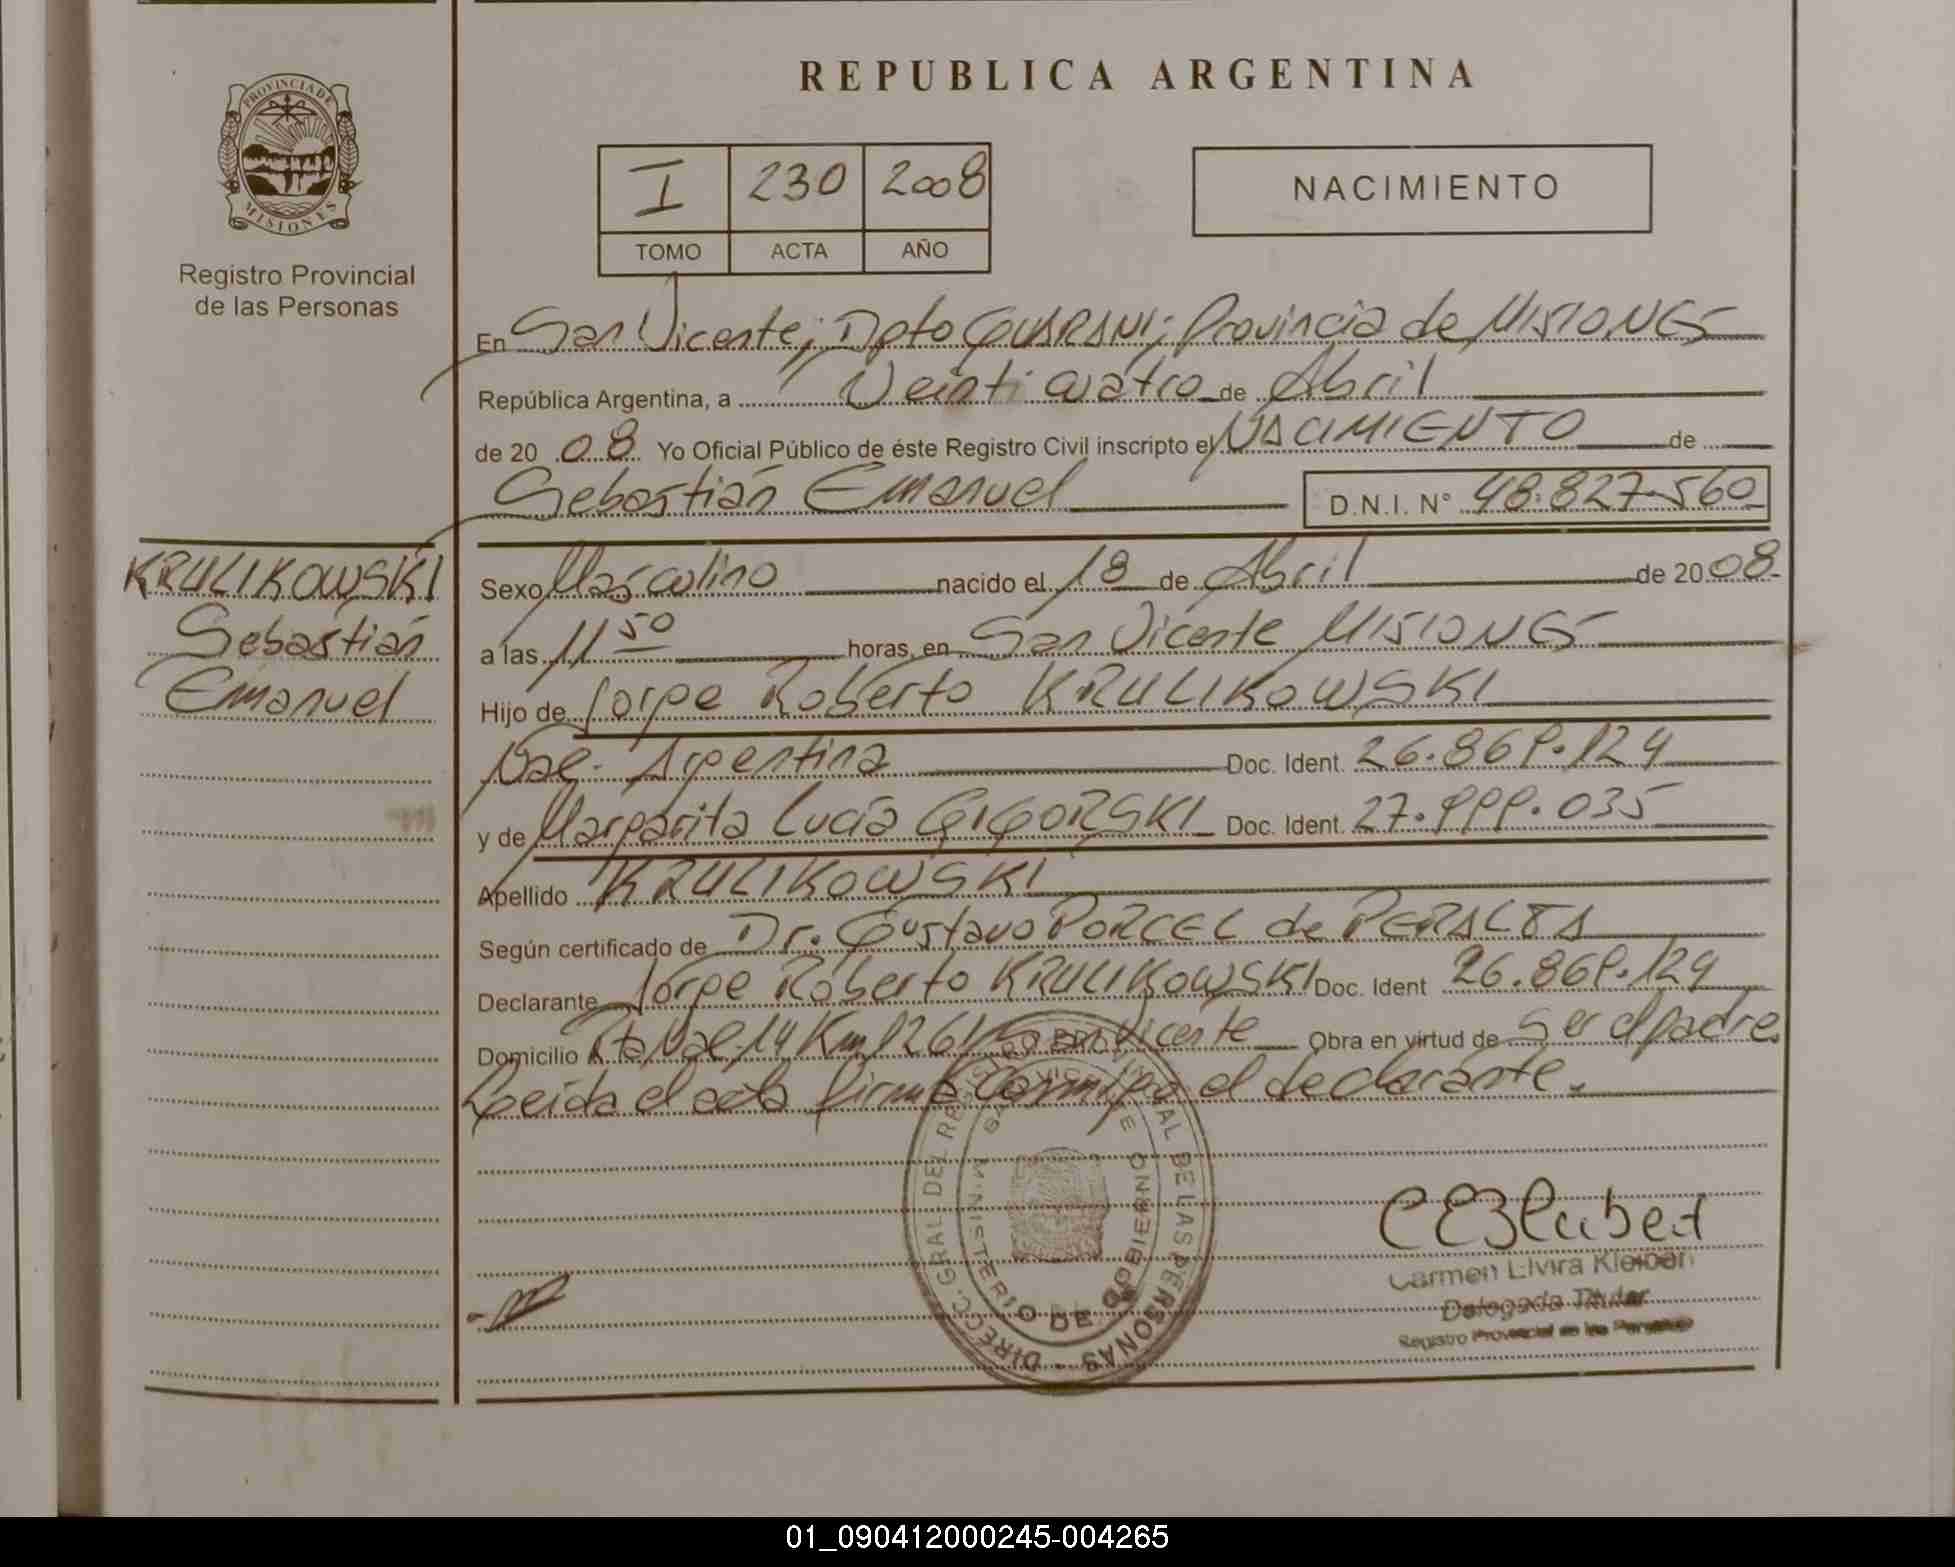 REPUBLICA ARGENTINA
PROVINCIA DE
MISIONES
Registro Provincial
de las Personas
I 230 2008
TOMO ACTA AÑO
NACIMIENTO
En San Vicente; Dpto GUARANI; Provincia de MISIONES
República Argentina, a Veinticuatro de Abril
de 2008 Yo Oficial Público de éste Registro Civil inscripto el NACIMIENTO de
Sebastián Emanuel D.N.I. N° 48.827.560
KRULIKOWSKI
Sebastián
Emanuel
Sexo Masculino nacido el 18 de Abril de 2008
a las 11 50 horas, en San Vicente MISIONES
Hijo de Jorge Roberto KRULIKOWSKI
Nac. Argentina Doc. Ident. 26.869.124
y de Margarita Lucía GIGORSKI Doc. Ident. 27.999.035
Apellido KRULIKOWSKI
Según certificado de Dr. Gustavo PORCEL de PERALTA
Declarante Jorge Roberto KRULIKOWSKI Doc. Ident 26.869.124
Domicilio Rta Nac 14 Km 1261 San Vicente Obra en virtud de Ser el padre.
Leída el acta firma conmigo el declarante.
DIRECC. GRAL DEL DE LAS PERSONAS
MINISTERIO DE GOBIERNO
Carmen Elvira Kleiben
Delegada Titular
Registro Provincial de las Personas
01_090412000245-004265